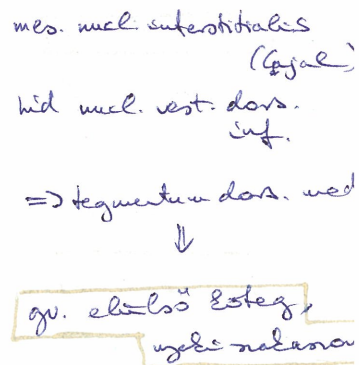 mes. nucl. interstitialis
(Cajal)
híd nucl. vest. dors.
inf.
=> tegmentum dors. med
⇓
gv. elülső köteg,
nyaki szakaszon